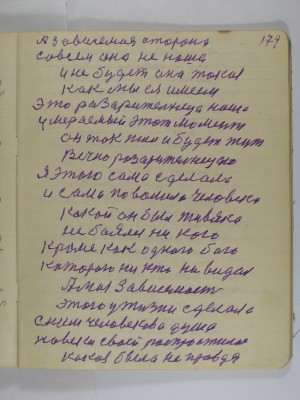 179
А зависемая сторона
совсем она не наша
и не будет она такая
как мы ея имеем
Это разарителница наша
умераемый этот момент
он так жил и будет тут
Вечно розарителнецою
Я этого сама сделала
и сама поволила человека
какой он был такова
не боялся ни кого
кроме как одного бога
каторого ни кто не видал
А мы Зависемост
этого у жизни сделала
с ним человекова душа
на веки своей распростилась
какая была не правдя